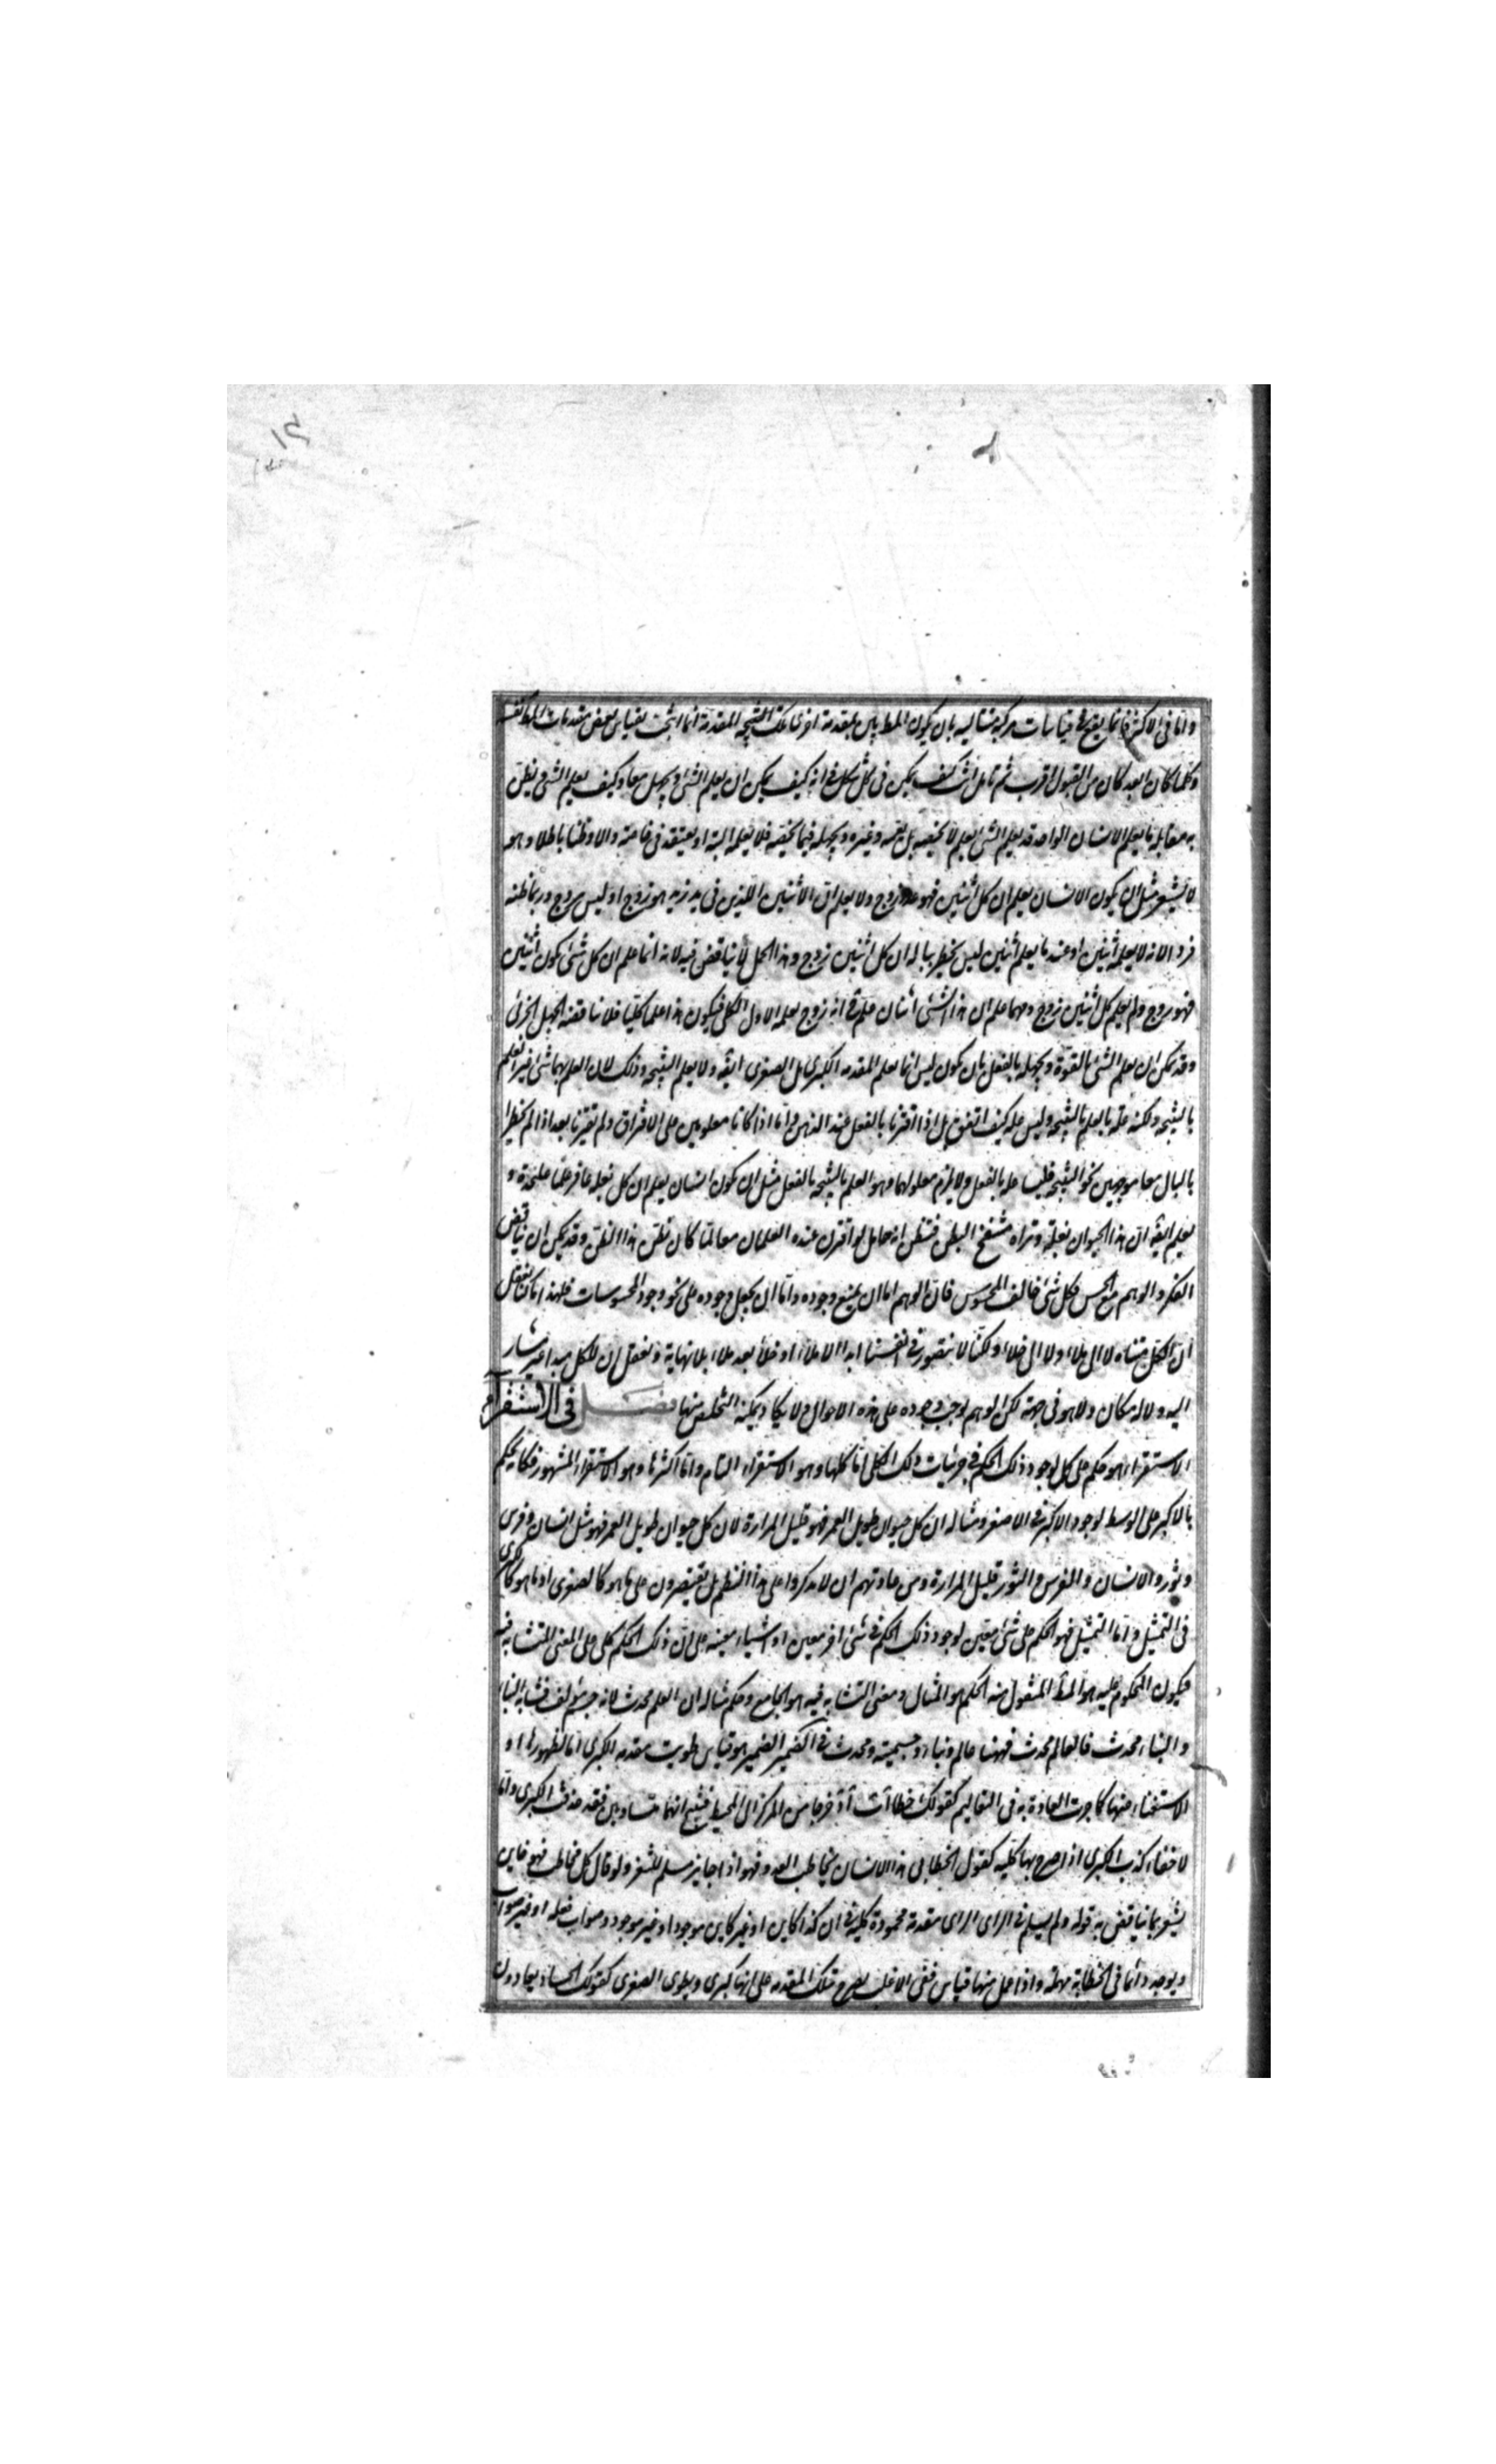 واما فى الاكثر فانما يقع فى قياسات مركبة متتالية بان يكون المط يبين بمقدمة اخرى تلك النتيجة المقدمة انما انتجت بقياس بعض مقدماته المط نفسه
وكلما كان ابعد كان من القبول اقرب ثم تامل انت كيف يمكن فى كل شكل فى انه كيف يمكن ان يعلم الشئ ويجهل معا وكيف يعلم الشئ ويظن
به مقابله ما يعلم الانسان الواحد قد يعلم الشئ بعلم لا يخصه بل يعمه وغيره ويجهله فيما يخصه فلا يعلمه البتة او يعتقد فى خاصته رايا وظنا باطلا وهو
لا يشعر مثل ان يكون الانسان يعلم ان كل اثنين فهو عدد زوج ولا يعلم ان الاثنين اللذين فى يد زيد هو زوج او ليس بزوج وربما ظنه
فردا لانه لا يعلمه اثنين او عند ما يعلم اثنين ليس يخطر بباله ان كل اثنين زوج وهذا الجهل لا يناقض فيه لانه انما علم ان كل شئ يكون اثنين
فهو زوج ولم يعلم كل اثنين زوج ومهما علم ان هذا الشئ اثنان علم فى انه زوج بعلمه الاول الكلى فيكون هذا علما كليا فلا يناقضه الجهل الجزئى
وقد يمكن ان يعلم الشئ بالقوة ويجهله بالفعل بان يكون ليس انما يعلم المقدمه الكبرى بل الصغرى ايضه ولا يعلم النتيجه وذلك لان العلم بهما شئ غير العلم
بالنتيجه ولكنه علة بالعلم بالنتيجه وليس علة كيف اتفق بل اذا اقترنا بالفعل عند الذهن واما اذا كانا معلومين على الافتراق ولم تقترنا بعد اذ الم يخطرا
بالبال معا موجهين نحو النتيجه فليسا علة بالفعل ولا يلزم معلولهما وهو العلم بالنتيجه بالفعل مثل ان يكون انسان يعلم ان كل بغلة عاقر علما عليحدة و
يعلم ايضه ان هذا الحيوان بغلة وتراه منتفخ البطن فتظن انه حامل لو اقترن عنده العلمان معا لما كان تظن هذا الظن وقد يمكن ان يناقض
الفكر والوهم مع الحس فكل شئ خالف المحسوس فان الوهم اما ان يمنع وجوده واما ان يجعل وجوده على نحو وجود المحسوسات فلهذا انا كنا نعقل
ان الكل متناه لا الى ملاء ولا الى خلاء ولكنا لا نتصور فى انفسنا ابدا الا ملاء او خلاء بعد ملاء بلا نهاية ونعقل ان للكل مبدا غير مشار
اليه ولا له مكان ولا هو فى جهة لكن الوهم يوجب وجوده على هذه الاحوال ولا يكاد يمكنه التخلص منها فصل فى الاستقراء
الاستقراء هو حكم على كل لوجود ذلك الحكم فى جزئيات ذلك الكلى اما كلها وهو الاستقراء التام واما اكثرها وهو الاستقراء المشهور فكانه يحكم
بالاكبر على الوسط لوجود الاكبر فى الاصغر ومثاله ان كل حيوان طويل العمر فهو قليل المرارة لان كل حيوان طويل العمر فهو مثل انسان وفرس
وثور والانسان والفرس والثور قليل المرارة ومن عادتهم ان لا يذكروا على هذا النظم بل يقتصرون على ما هو كالصغرى او ما هو كالكبرى
فى التمثيل واما التمثيل فهو الحكم على شئ معين لوجود ذلك الحكم فى شئ اخر معين او اشياء معينه على ان ذلك الحكم كلى على المعنى المتشابه فيه
فيكون المحكوم عليه هو المط المنقول منه الحكم هو المثال ومعنى التشابه فيه هو الجامع وحكم مثاله ان العلم محدث لانه جسم مؤلف فشابه البناء
والبناء محدث فالعالم محدث فههنا عالم وبناء وجسمية ومحدث فى الضمير الضمير هو قياس طويت مقدمه الكبرى اما لظهورها او
الاستغناء عنها كما جرت العادة به فى التعاليم كقولك خطا اَب اَج خرجا من المركز الى المحيط فينتج انهما متساويين فقد حذفت الكبرى واما
لاخفاء كذب الكبرى اذا صرح بها كلية كقول الخطابى هذا الانسان يخاطب العدو فهو اذا جاين مسلم للثغر ولو قال كل مخاطب فهو خاين
يشعر بما يناقض به قوله ولم يسلم فى الراى الراى مقدمة محمودة كلية فى ان كذا كاين او غير كاين موجود او غير موجود وصواب فعله او غير صواب
ويوجد دائما فى الخطابة مهملة واذا عمل منها قياس ففى الاغلب يصرح بتلك المقدمه على انها كبرى ويطوى الصغرى كقولك الحساد يعادون